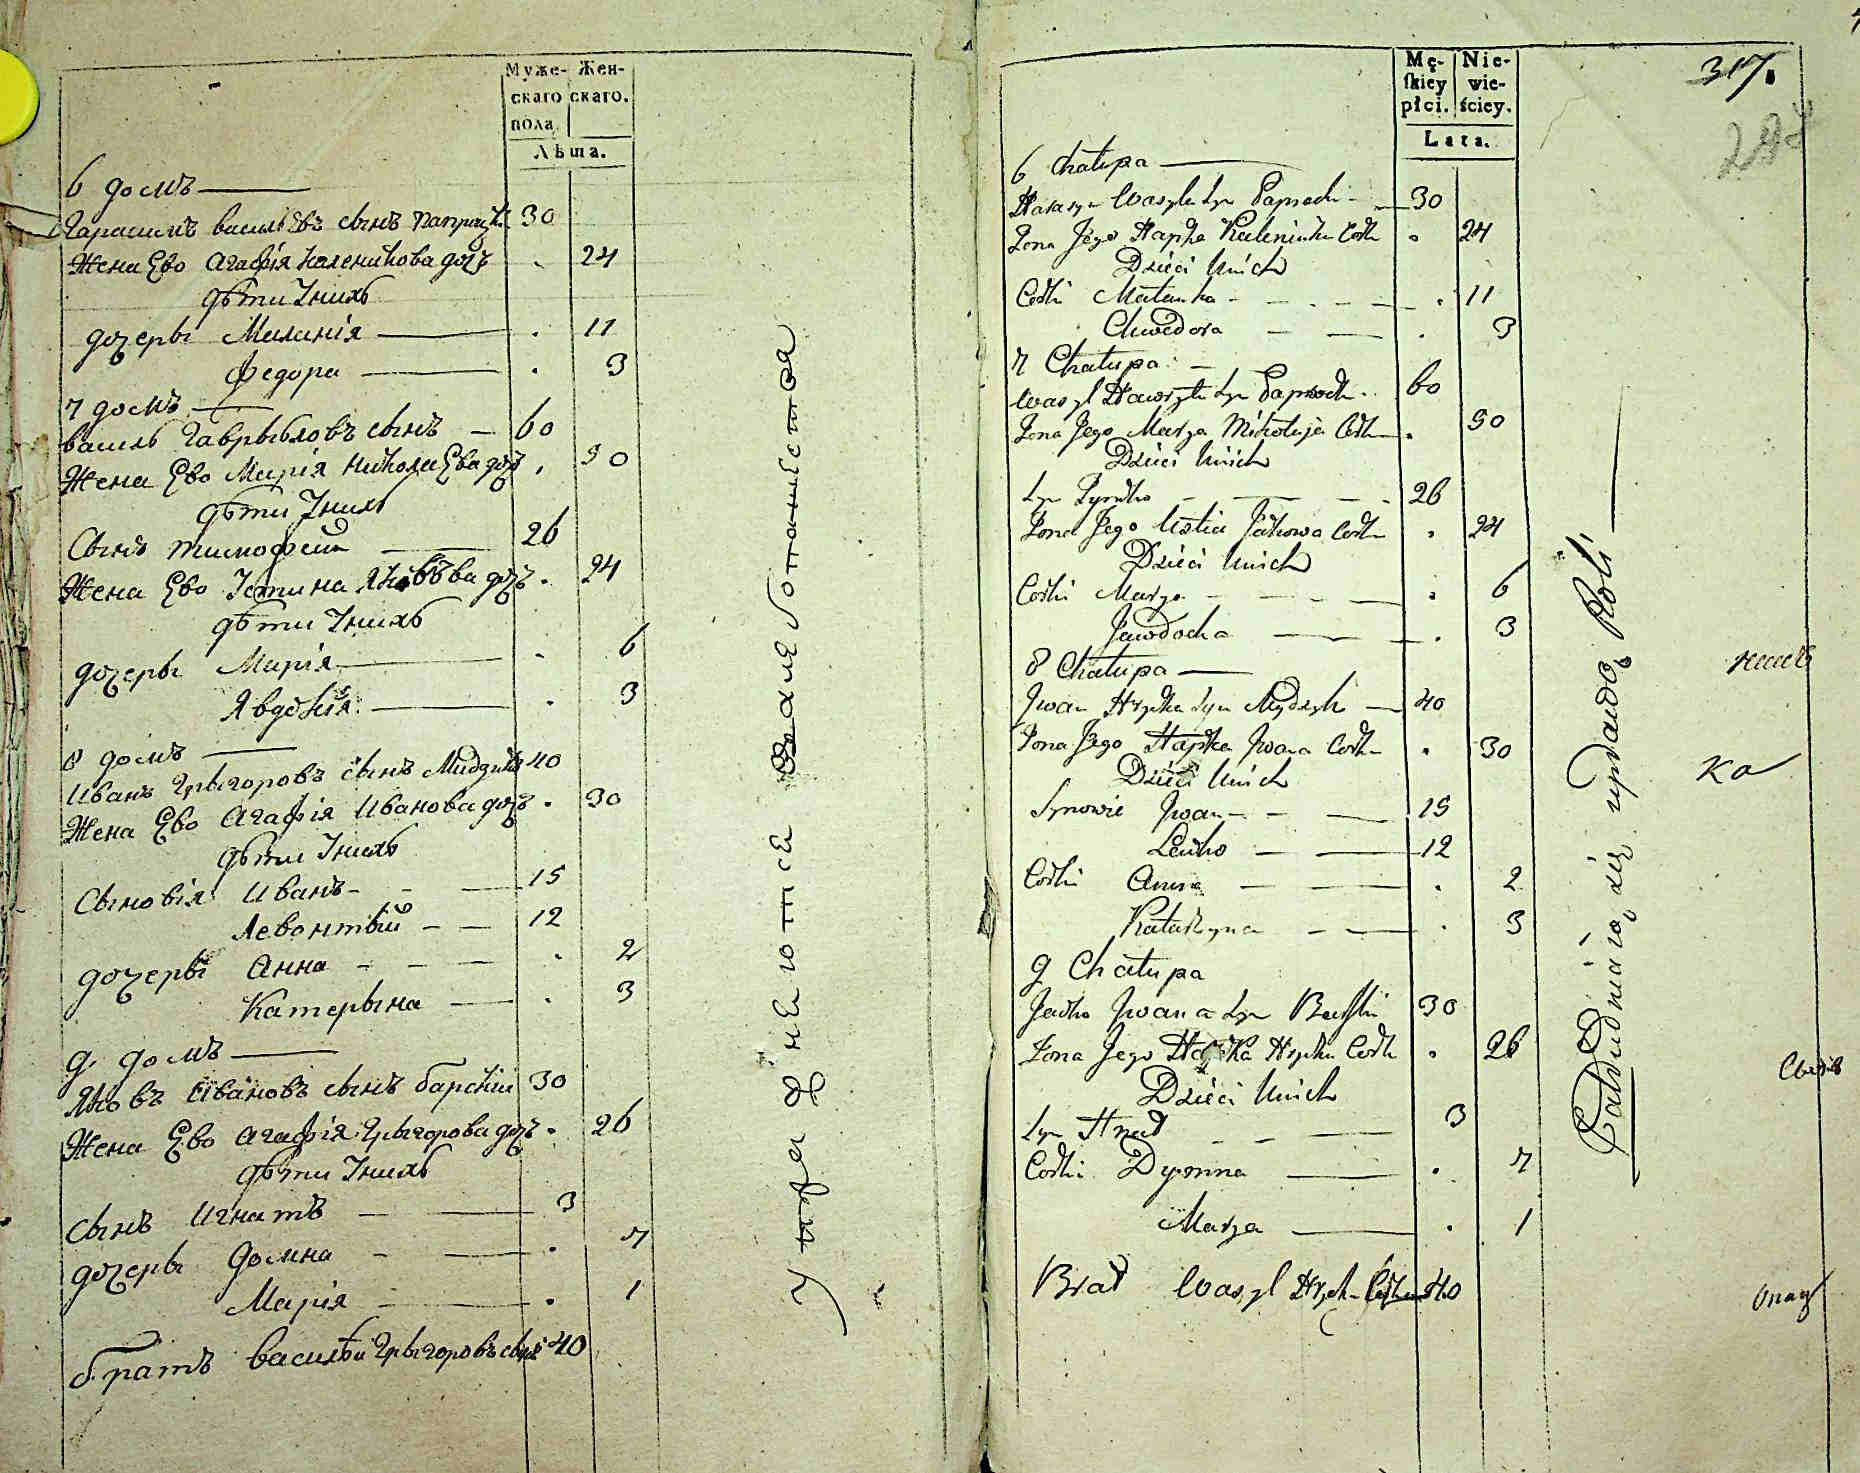 Муже- Жен-
скаго скаго.
пола
Лѣта.
6 домъ
Гарасимъ васильевъ сынъ папрац. 30
Жена Ево Агафія Каленикова дочь . 24
дѣти Iнихъ
дочеры Миланія . 11
Федора . 3
7 домъ
василь Гаврыловъ сынъ 60
Жена Ево Марія Николаева дочь . 50
дѣти Iнихъ
Сынъ тимофей 26
Жена Ево Iстина Яковѣва дочь . 24
дѣти Iнихъ
дочеры Марія . 6
Явдокія . 3
8 домъ
Иванъ Грыгоровъ сынъ 40
Жена Ево Агафія Иванова дочь . 30
дѣти Iнихъ
Сыновія Иванъ 15
Левонтѣй 12
дочеры Анна . 2
Катерына . 3
9 домъ
Яковъ Ивановъ сынъ барский 30
Жена Ево Агафія Грыгорова дочь . 26
дѣти Iнихъ
сынъ Игнатъ 3
дочеры Домна . 7
Марія . 1
братъ василѣй Грыгоровъ сынъ 40
Упражнеются Замлеботаниства
Mę- Nie-
ſkiey wie-
płci. ściey.
Lata.
317.
6 Chałupa
Harasym Wasyla Syn 30
Zona Jego Hapka Kalenika Córka . 24
Dzieci Unich
Córki Małanka . 11
Chwedora . 3
7 Chałupa
Wasyl Hawryła Syn 60
Zona Jego Marya Mikołaja Córka . 50
Dzieci Unich
Syn Tymko 26
Zona Jego Ustia Jakowa Córka . 24
Dzieci Unich
Córki Marya . 6
Jawdocha . 3
8 Chałupa
Jwan Hryćka Syn 40
Zona Jego Hapka Jwana Córka . 30
Dzieci Unich
Synowie Jwan 15
Lewko 12
Córki Anna . 2
Katarzyna . 3
9 Chałupa
Jacko Jwana Syn Barski 30
Zona Jego Hapka Hryćka Córka . 26
Dzieci Unich
Syn Hnat 3
Córki Dyomna . 7
Marya . 1
Brat Wasyl Hryćka 40
Zatrudniaią się uprawą Roli
Ka
сынъ